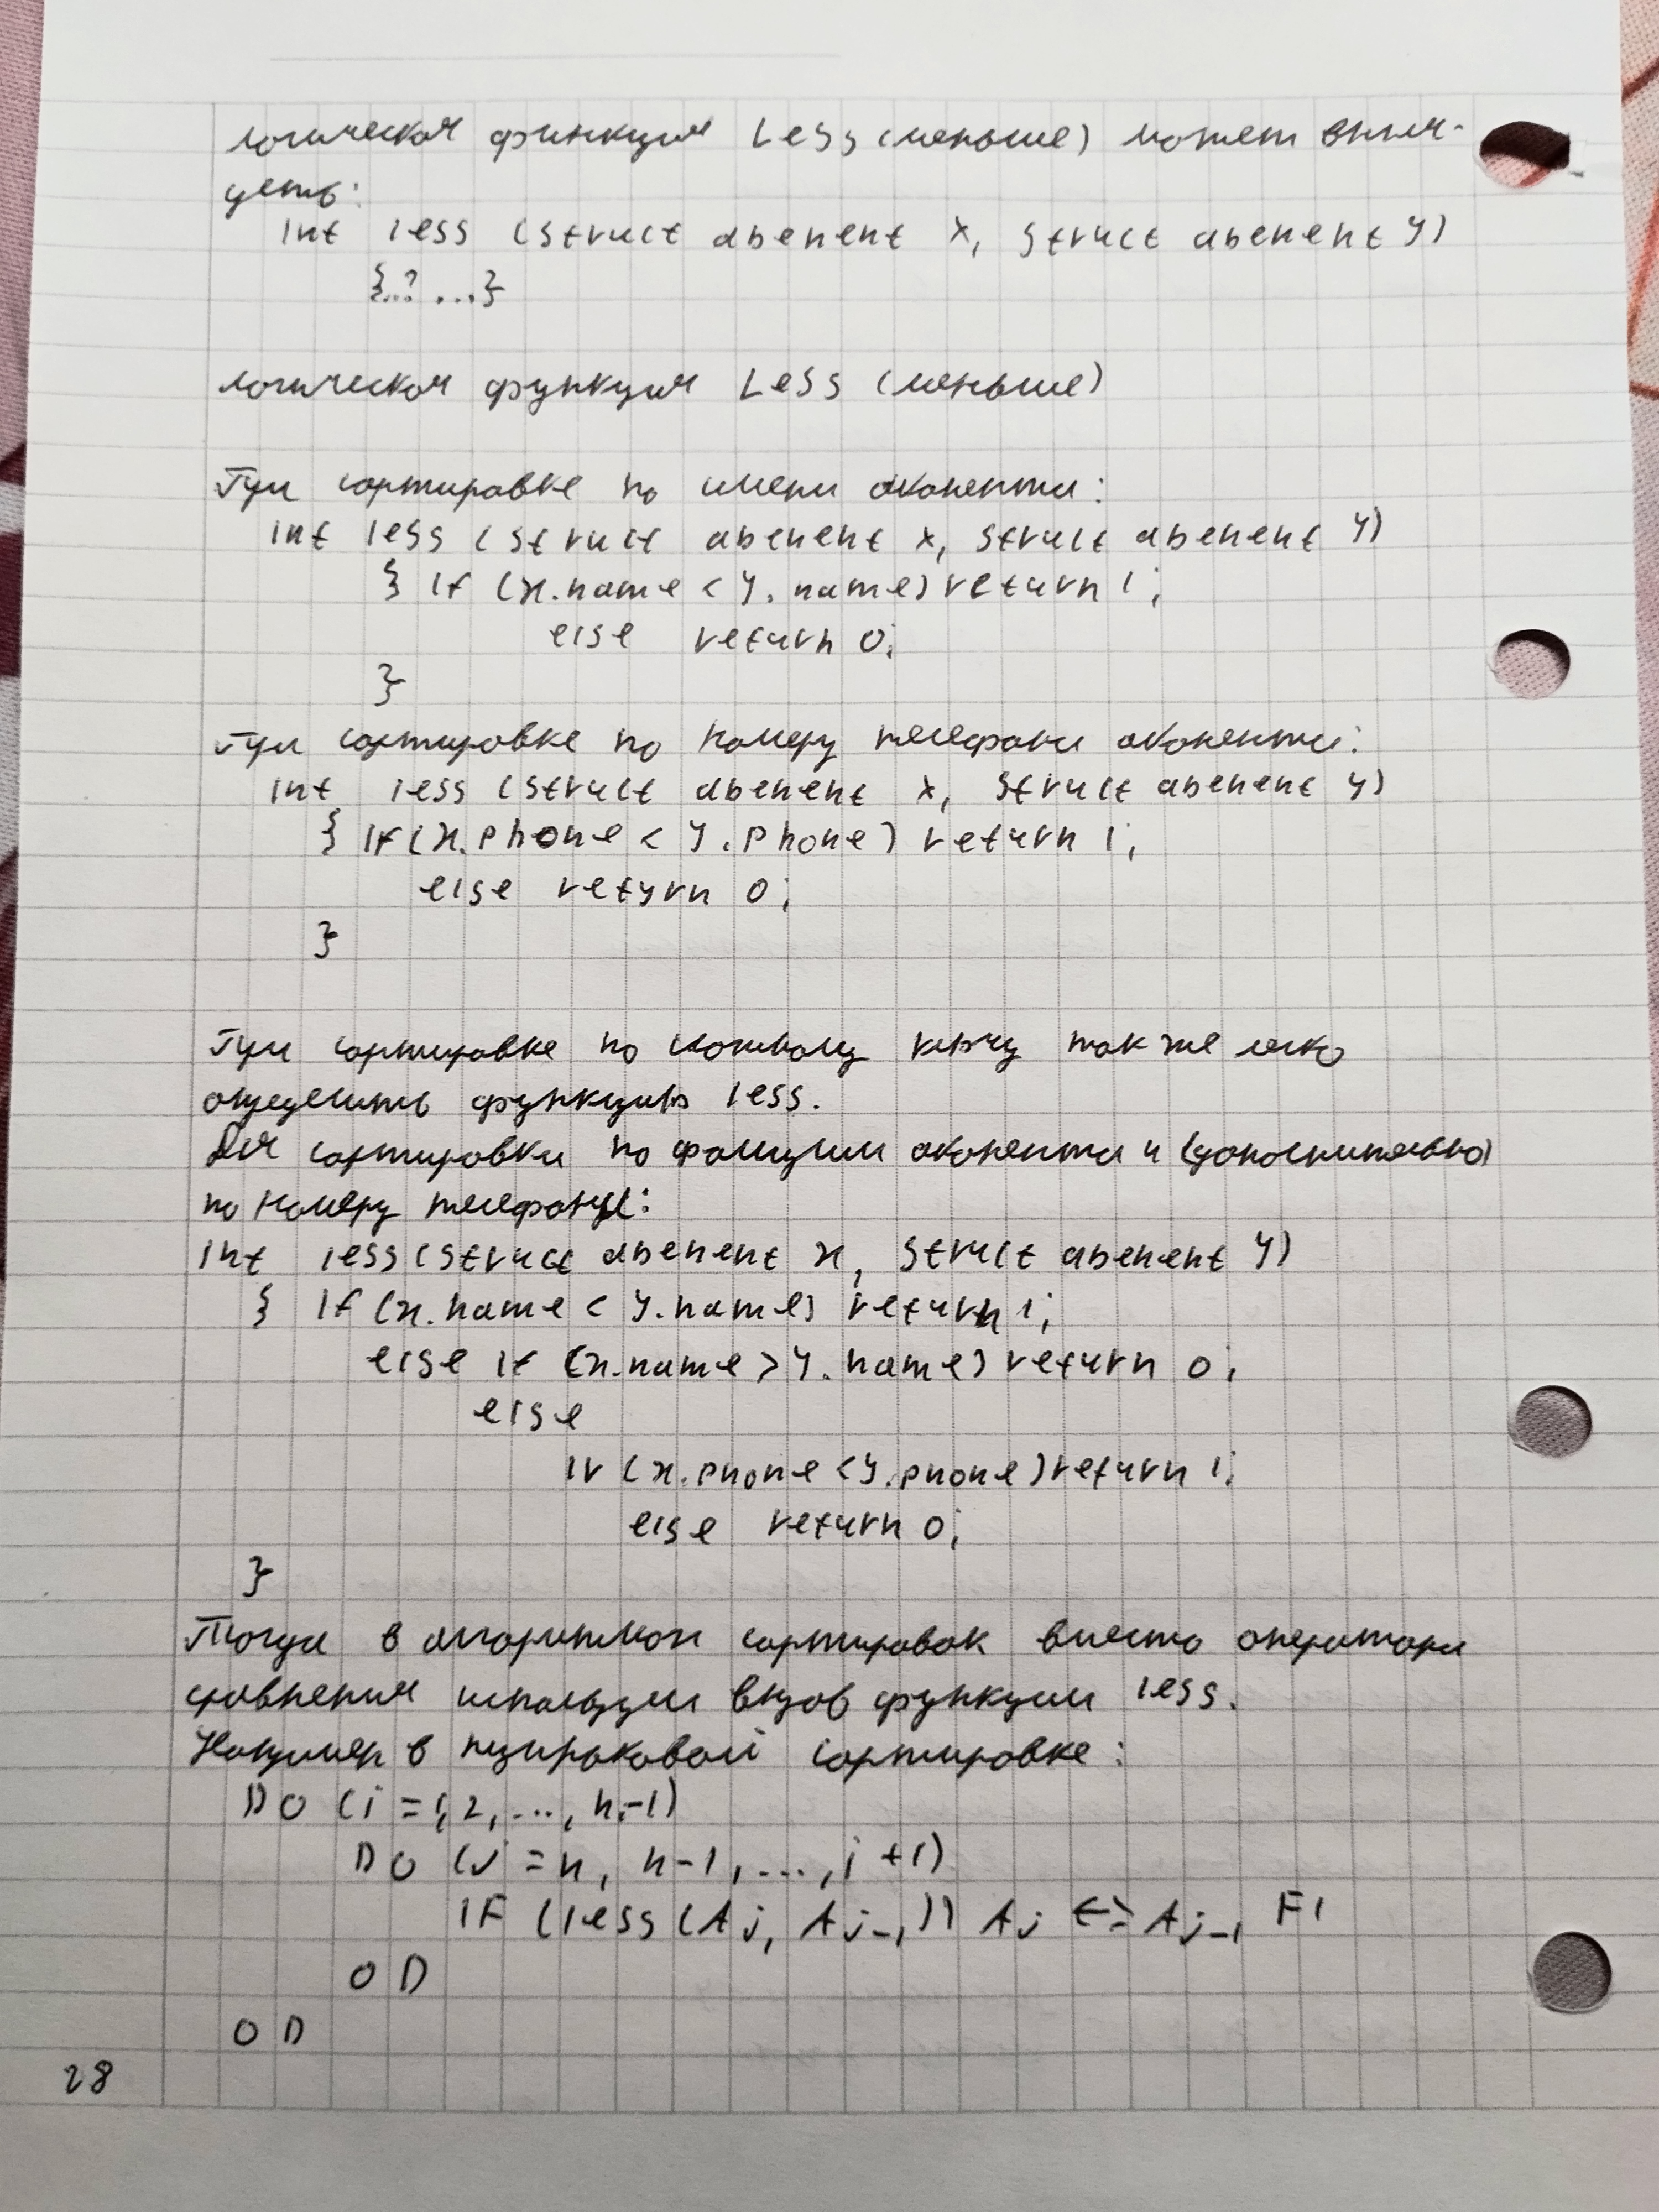 логическая функция Less (меньше) может выгля-
деть:
int less (struct abenent x, struct abenent y)
{..? ...}
логическая функция Less (меньше)
При сортировке по имени абонента:
int less (struct abenent x, struct abenent y)
{ if (x.name < y.name) return 1;
else return 0;
}
При сортировке по номеру телефона абонента:
int less (struct abenent x, struct abenent y)
{ if (x.phone < y.phone) return 1;
else return 0;
}
При сортировке по сложному ключу так же легко
определить функцию less.
Для сортировки по фамилии абонента и (дополнительно)
по номеру телефона:
int less (struct abenent x, struct abenent y)
{ if (x.name < y.name) return 1;
else if (x.name > y.name) return 0;
else
if (x.phone < y.phone) return 1;
else return 0;
}
Тогда в алгоритмах сортировок вместо оператора
сравнения используем вызов функции less.
Например в пузырьковой сортировке:
DO (i = 1, 2, ..., n-1)
DO (j = n, n-1, ..., i+1)
IF (less (Aj, Aj-1)) Aj <=> Aj-1 FI
OD
OD
28